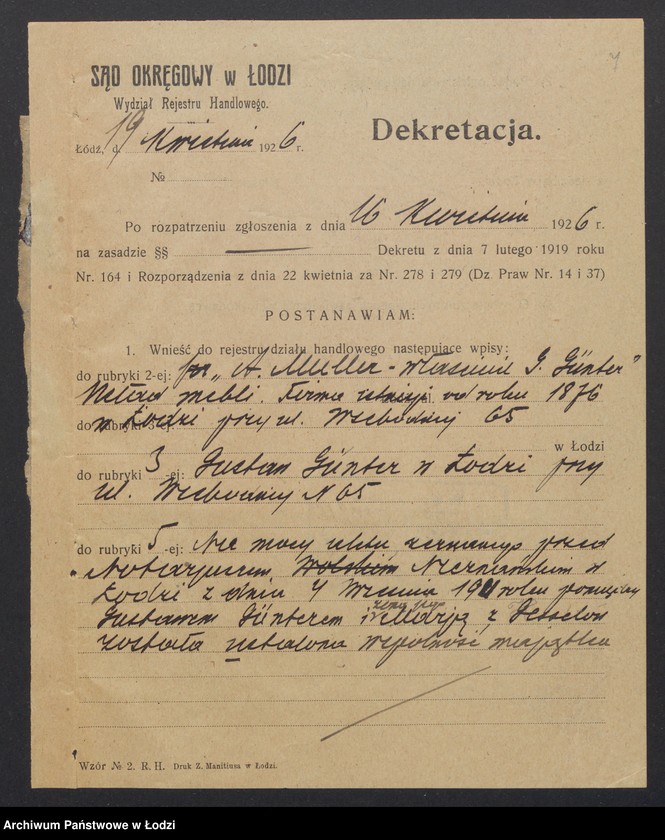 4
SĄD OKRĘGOWY w ŁODZI
Wydział Rejestru Handlowego.
Łódź, d. 19 Kwietnia 1926 r.
№
Dekretacja.
Po rozpatrzeniu zgłoszenia z dnia 16 Kwietnia 1926 r.
na zasadzie §§ — Dekretu z dnia 7 lutego 1919 roku
Nr. 164 i Rozporządzenia z dnia 22 kwietnia za Nr. 278 i 279 (Dz. Praw Nr. 14 i 37)
POSTANAWIAM:
1. Wnieść do rejestru działu handlowego następujące wpisy:
do rubryki 2-ej: „A. Müller - właściciel G. Günter"
Skład mebli. Firma istnieje od roku 1876
w Łodzi przy ul. Wschodniej 65
do rubryki 3-ej: Gustaw Günter w Łodzi przy
ul. Wschodniej N 65
do rubryki 5-ej: Na mocy aktu zeznanego przed
Notarjuszem w
Łodzi z dnia Września roku pomiędzy
Gustawem Günterem i żoną jego Marją z
została ustalona wspólność majątku
Wzór № 2. R. H. Druk Z. Manitiusa w Łodzi.
Archiwum Państwowe w Łodzi